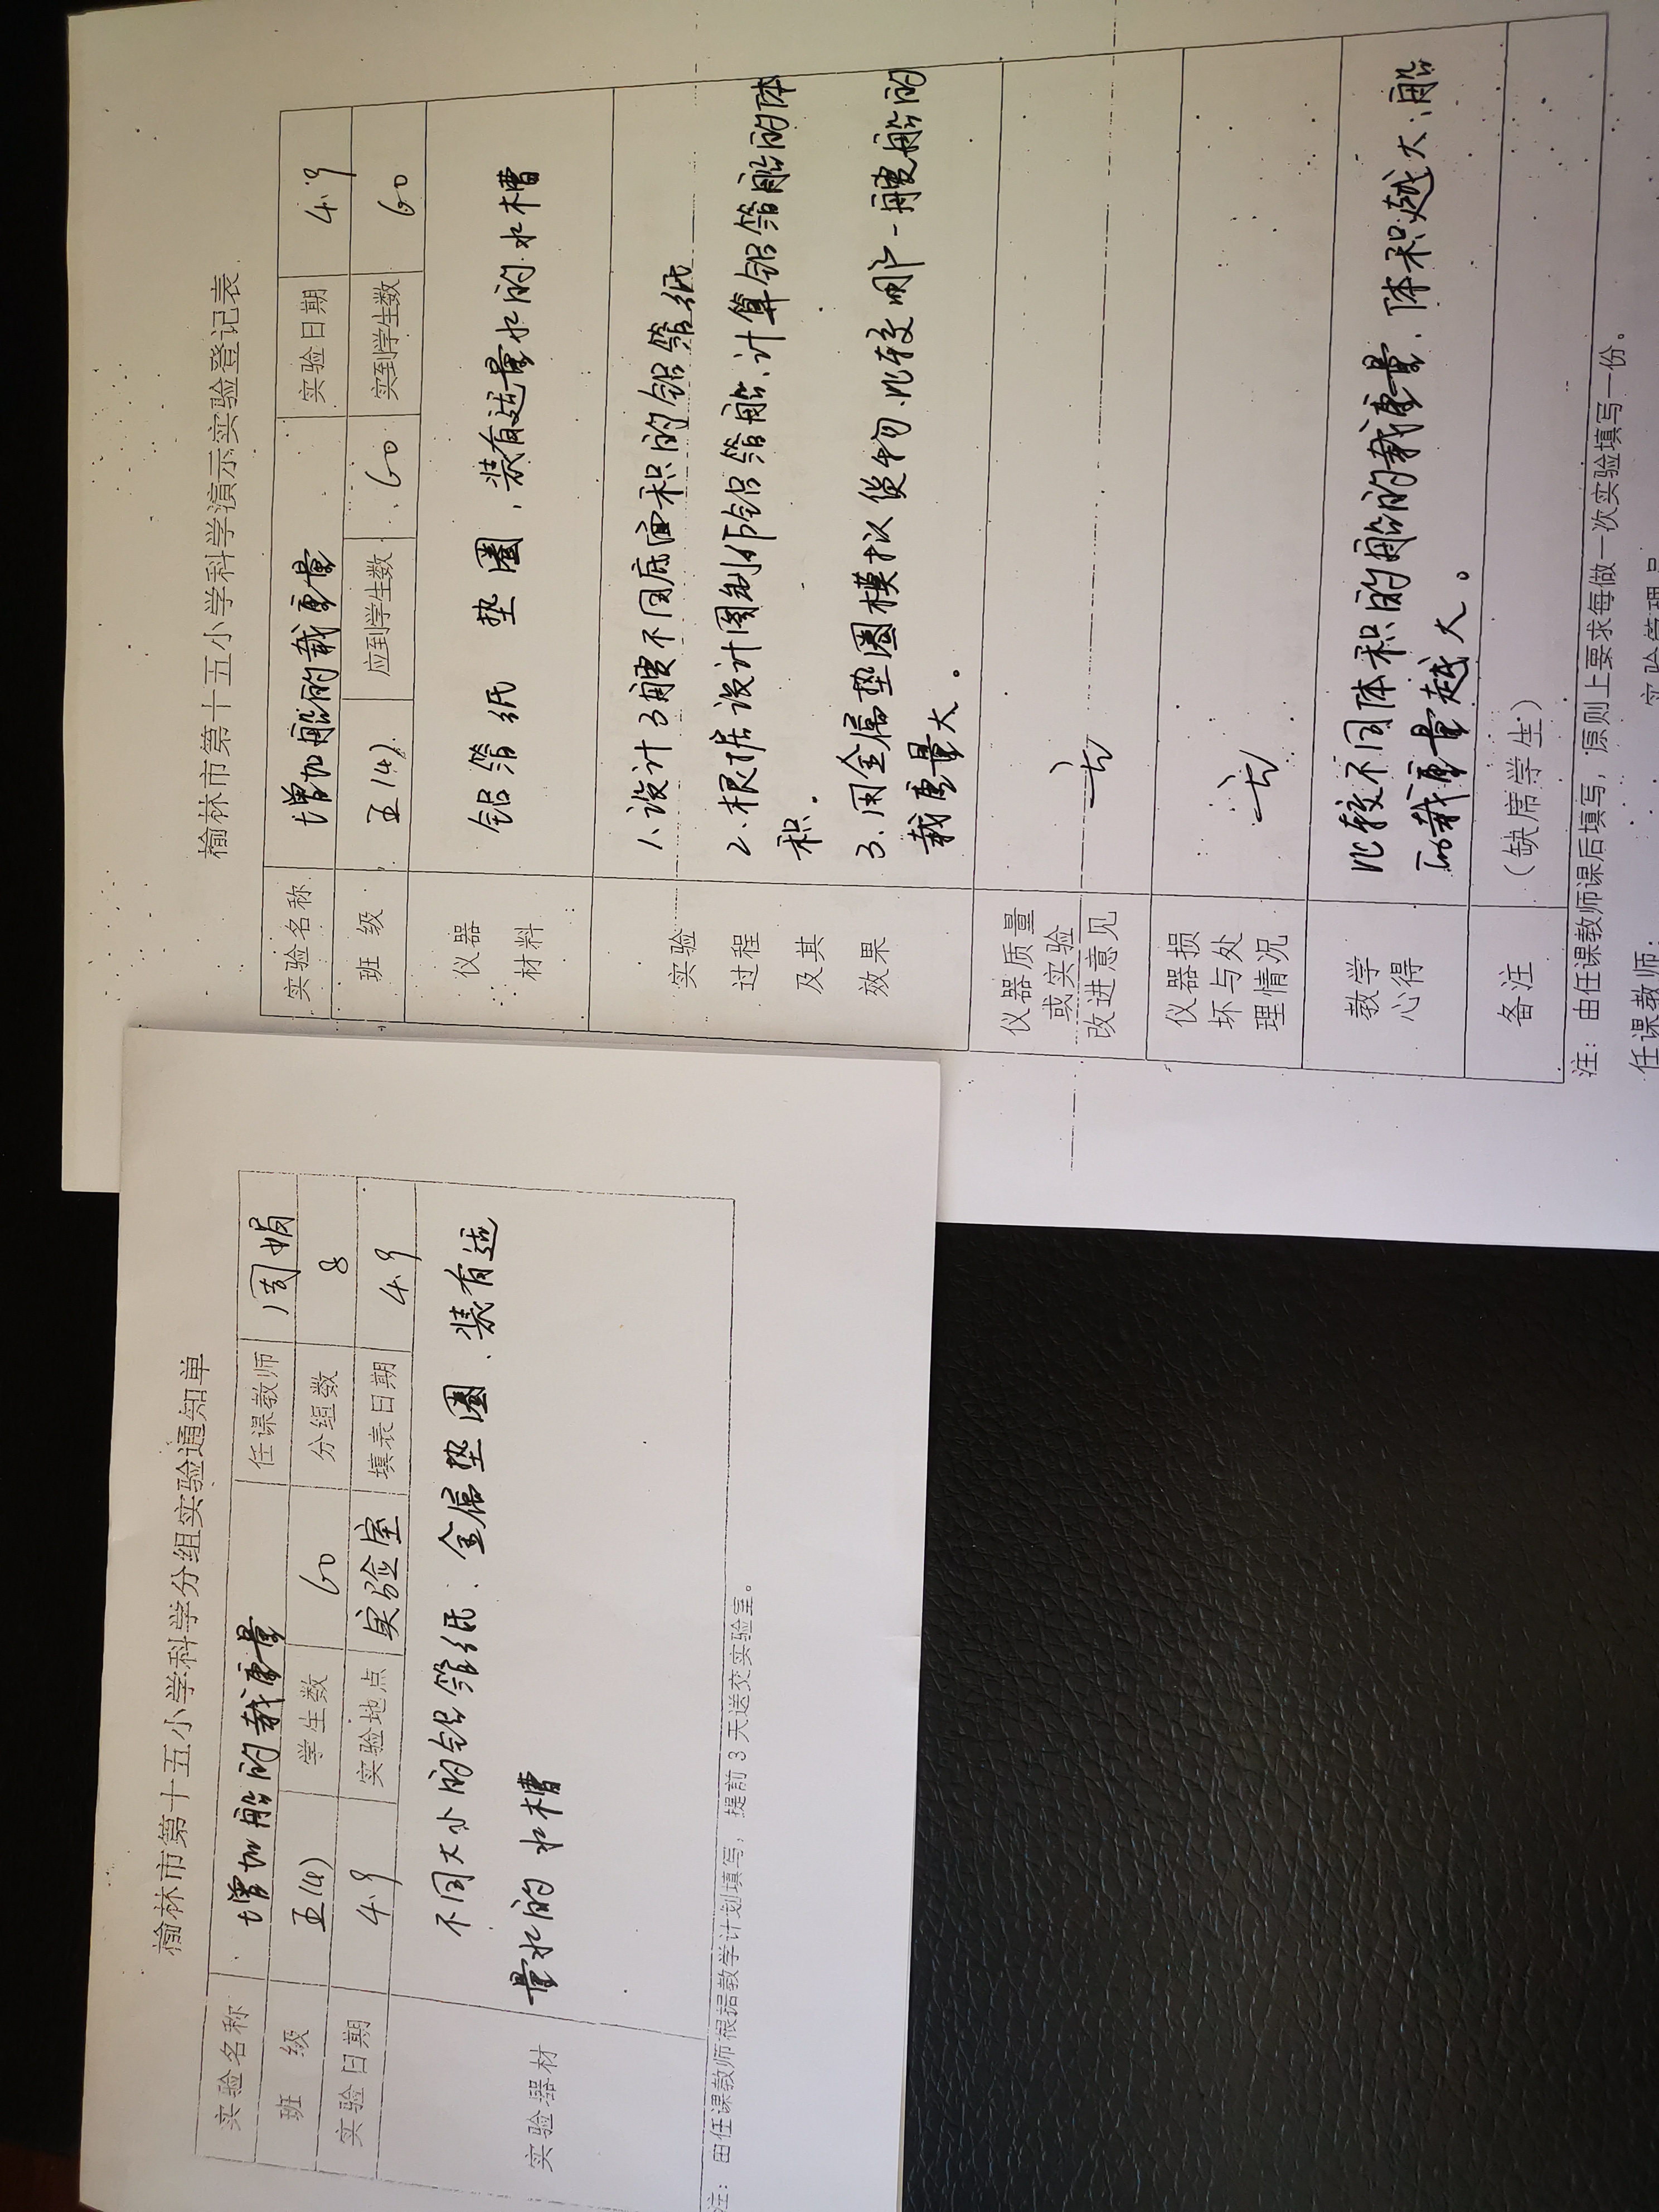 榆林市第十五小学科学分组实验通知单
实验名称 增加船的载重量 任课教师 周娟
班 级 五(4) 学生数 60 分组数 8
实验日期 4.9 实验地点 实验室 填表日期 4.9
实验器材 不同大小的铝箔纸、金属垫圈、装有适
量水的水槽
注：由任课教师根据教学计划填写，提前3天送交实验室。
榆林市第十五小学科学演示实验登记表
实验名称 增加船的载重量 实验日期 4.9
班 级 五(4) 应到学生数 60 实到学生数 60
仪器
材料
铝箔纸 垫圈、装有适量水的水槽
实验
过程
及其
效果
1、设计3艘不同底面积的铝箔纸
2、根据设计图制作铝箔船、计算铝箔船的体
积。
3、用金属垫圈模拟货物、比较哪一艘船的
载重量大。
仪器质量
或实验
改进意见
无
仪器损
坏与处
理情况
无
教学
心得
比较不同体积的船的载重量、体积越大、船
的载重量越大。
备注 （缺席学生）
注：由任课教师课后填写，原则上要求每做一次实验填写一份。
任课教师：